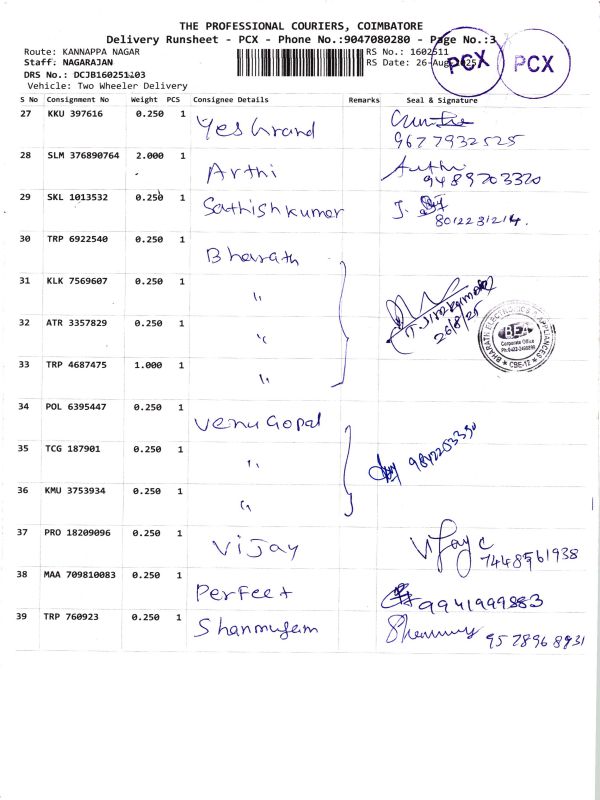 THE PROFESSIONAL COURIERS, COIMBATORE
Delivery Runsheet - PCX - Phone No.:9047080280 - Page No.:3
Route: KANNAPPA NAGAR RS No.: 1602511
Staff: NAGARAJAN RS Date: 26-Aug-2025
DRS No.: DCJB160251103
Vehicle: Two Wheeler Delivery
PCX PCX
S No Consignment No Weight PCS Consignee Details Remarks Seal & Signature
27 KKU 397616 0.250 1 Yes Grand
9677932525
28 SLM 376890764 2.000 1 Arthi Arthi
9489703320
29 SKL 1013532 0.250 1 Sathish kumar J.
8012231214.
30 TRP 6922540 0.250 1 Bharath
31 KLK 7569607 0.250 1 "
26/8/25
BHARATH ELECTRONICS & APPLIANCES
BEA
Corporate Office
* CBE-12 *
32 ATR 3357829 0.250 1 "
33 TRP 4687475 1.000 1 "
34 POL 6395447 0.250 1 Venu Gopal
35 TCG 187901 0.250 1 "
36 KMU 3753934 0.250 1 "
37 PRO 18209096 0.250 1 Vijay Vijay C
7448561938
38 MAA 709810083 0.250 1 Perfect
9941999883
39 TRP 760923 0.250 1 Shanmugam
9578968931